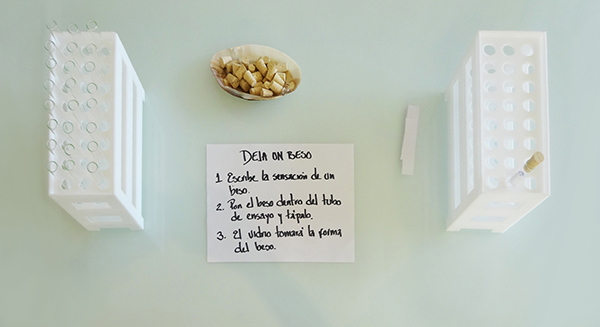 DEJA UN BESO
1. Escribe la sensación de un
beso.
2. Pon el beso dentro del tubo
de ensayo y tápalo.
3. El vidrio tomará la forma
del beso.